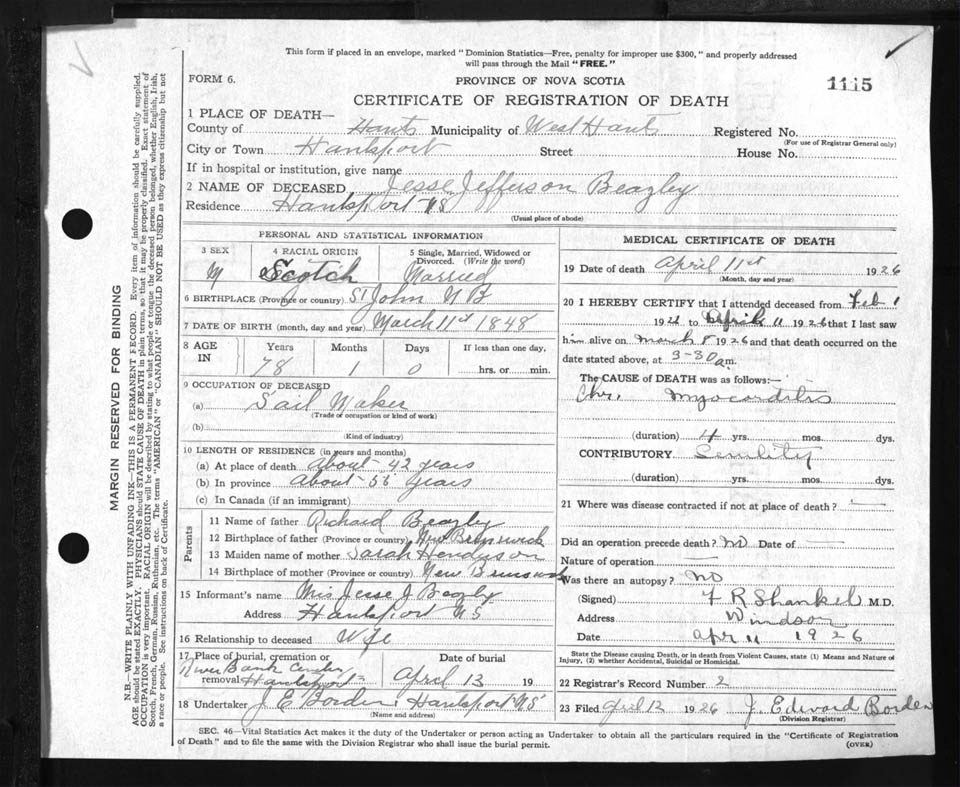 This form if placed in an envelope, marked "Dominion Statistics—Free, penalty for improper use $300," and properly addressed
will pass through the Mail "FREE."
FORM 6.
PROVINCE OF NOVA SCOTIA
1115
CERTIFICATE OF REGISTRATION OF DEATH
1 PLACE OF DEATH—
County of Hants Municipality of West Hants Registered No.
(For use of Registrar General only)
City or Town Hantsport Street House No.
If in hospital or institution, give name
2 NAME OF DECEASED Jesse Jefferson Beazley
Residence Hantsport NS
(Usual place of abode)
PERSONAL AND STATISTICAL INFORMATION
3 SEX 4 RACIAL ORIGIN 5 Single, Married, Widowed or
Divorced. (Write the word)
M Scotch Married
6 BIRTHPLACE (Province or country) St John N B
7 DATE OF BIRTH (month, day and year) March 11st 1848
8 AGE IN Years Months Days If less than one day.
78 1 0 hrs. or min.
9 OCCUPATION OF DECEASED
(a) Sail Maker
(Trade or occupation or kind of work)
(b)
(Kind of industry)
10 LENGTH OF RESIDENCE (in years and months)
(a) At place of death About 42 years
(b) In province About 56 years
(c) In Canada (if an immigrant)
Parents
11 Name of father Richard Beazley
12 Birthplace of father (Province or country) New Brunswick
13 Maiden name of mother Sarah Henderson
14 Birthplace of mother (Province or country) New Brunswick
15 Informant's name Mrs Jesse J Beazley
Address Hantsport N S
16 Relationship to deceased Wife
17 Place of burial, cremation or removal Date of burial
River Bank
Hantsport April 13 19
18 Undertaker J. E Borden Hantsport NS
(Name and address)
MEDICAL CERTIFICATE OF DEATH
19 Date of death April 11st 1926
(Month, day and year)
20 I HEREBY CERTIFY that I attended deceased from Feb 1
1922 to April 11 1926 that I last saw
him alive on March 8 1926 and that death occurred on the
date stated above, at 3-30 a.m.
The CAUSE OF DEATH was as follows:—
Chr. myocarditis
(duration) 4 yrs. mos. dys.
CONTRIBUTORY Senility
(duration) yrs. mos. dys.
21 Where was disease contracted if not at place of death?
Did an operation precede death? no Date of —
Nature of operation —
Was there an autopsy? no
(Signed) F R Shankel M.D.
Address Windsor
Date Apr 11 1926
State the Disease causing Death, or in death from Violent Causes, state (1) Means and Nature of
Injury, (2) whether Accidental, Suicidal or Homicidal.
22 Registrar's Record Number 2
23 Filed April 12 1926 J. Edward Borden
(Division Registrar)
SEC. 46—Vital Statistics Act makes it the duty of the Undertaker or person acting as Undertaker to obtain all the particulars required in the "Certificate of Registration
of Death" and to file the same with the Division Registrar who shall issue the burial permit.
(OVER)
MARGIN RESERVED FOR BINDING
N.B.—WRITE PLAINLY WITH UNFADING INK—THIS IS A PERMANENT RECORD. Every item of information should be carefully supplied.
AGE should be stated EXACTLY. PHYSICIANS should STATE CAUSE OF DEATH in plain terms, so that it may be properly classified. Exact statement of
OCCUPATION is very important. RACIAL ORIGIN will be described by stating to what people or tongue the deceased person belonged, whether English, Irish,
Scotch, French, German, Russian, Ruthenian, etc. The terms "AMERICAN" or "CANADIAN" SHOULD NOT BE USED as they express citizenship but not
a race or people. See instructions on back of Certificate.